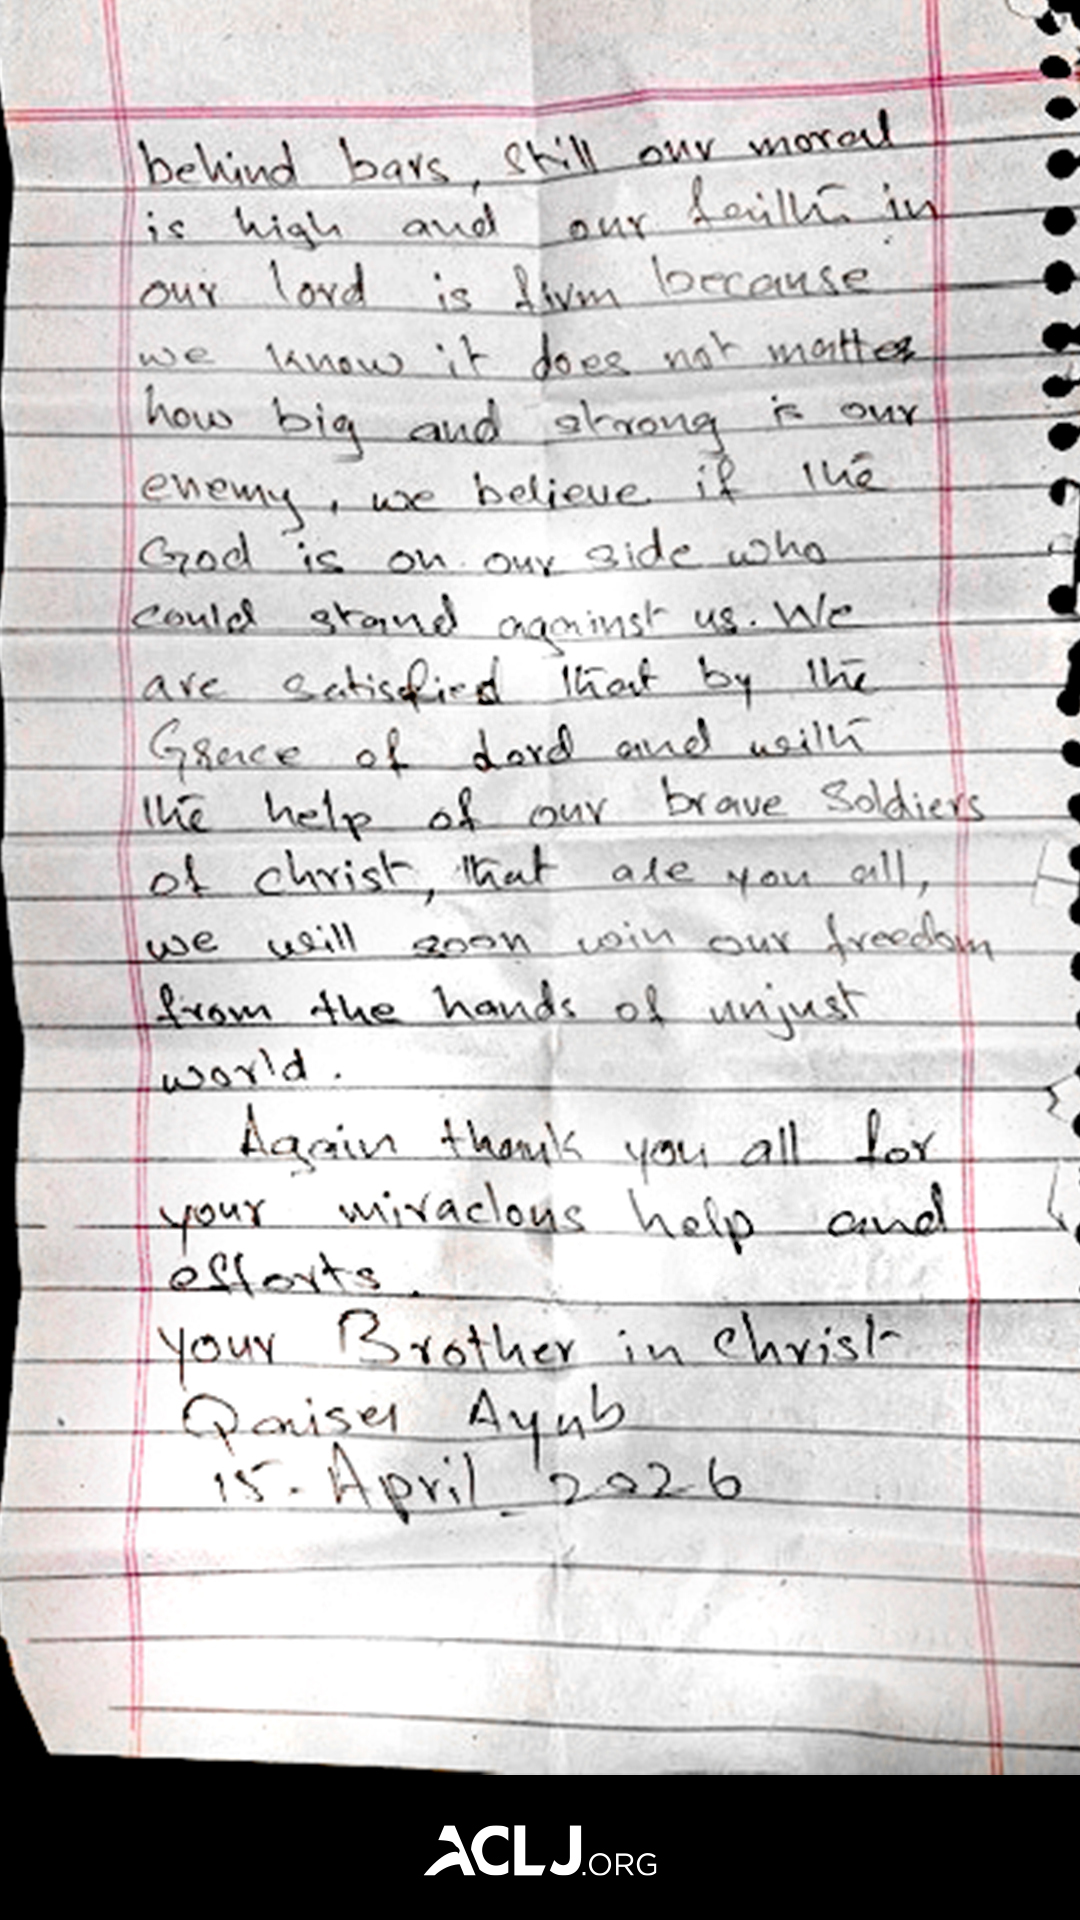 behind bars, still our moral
is high and our faith in
our lord is firm because
we know it does not matter
how big and strong is our
enemy, we believe if the
God is on our side who
could stand against us. We
are satisfied that by the
Grace of Lord and with
the help of our brave Soldiers
of christ, that are you all,
we will soon win our freedom
from the hands of unjust
world.
Again thank you all for
your miraclous help and
efforts.
your Brother in Christ
Qaiser Ayub
15-April 2026
ACLJ.ORG